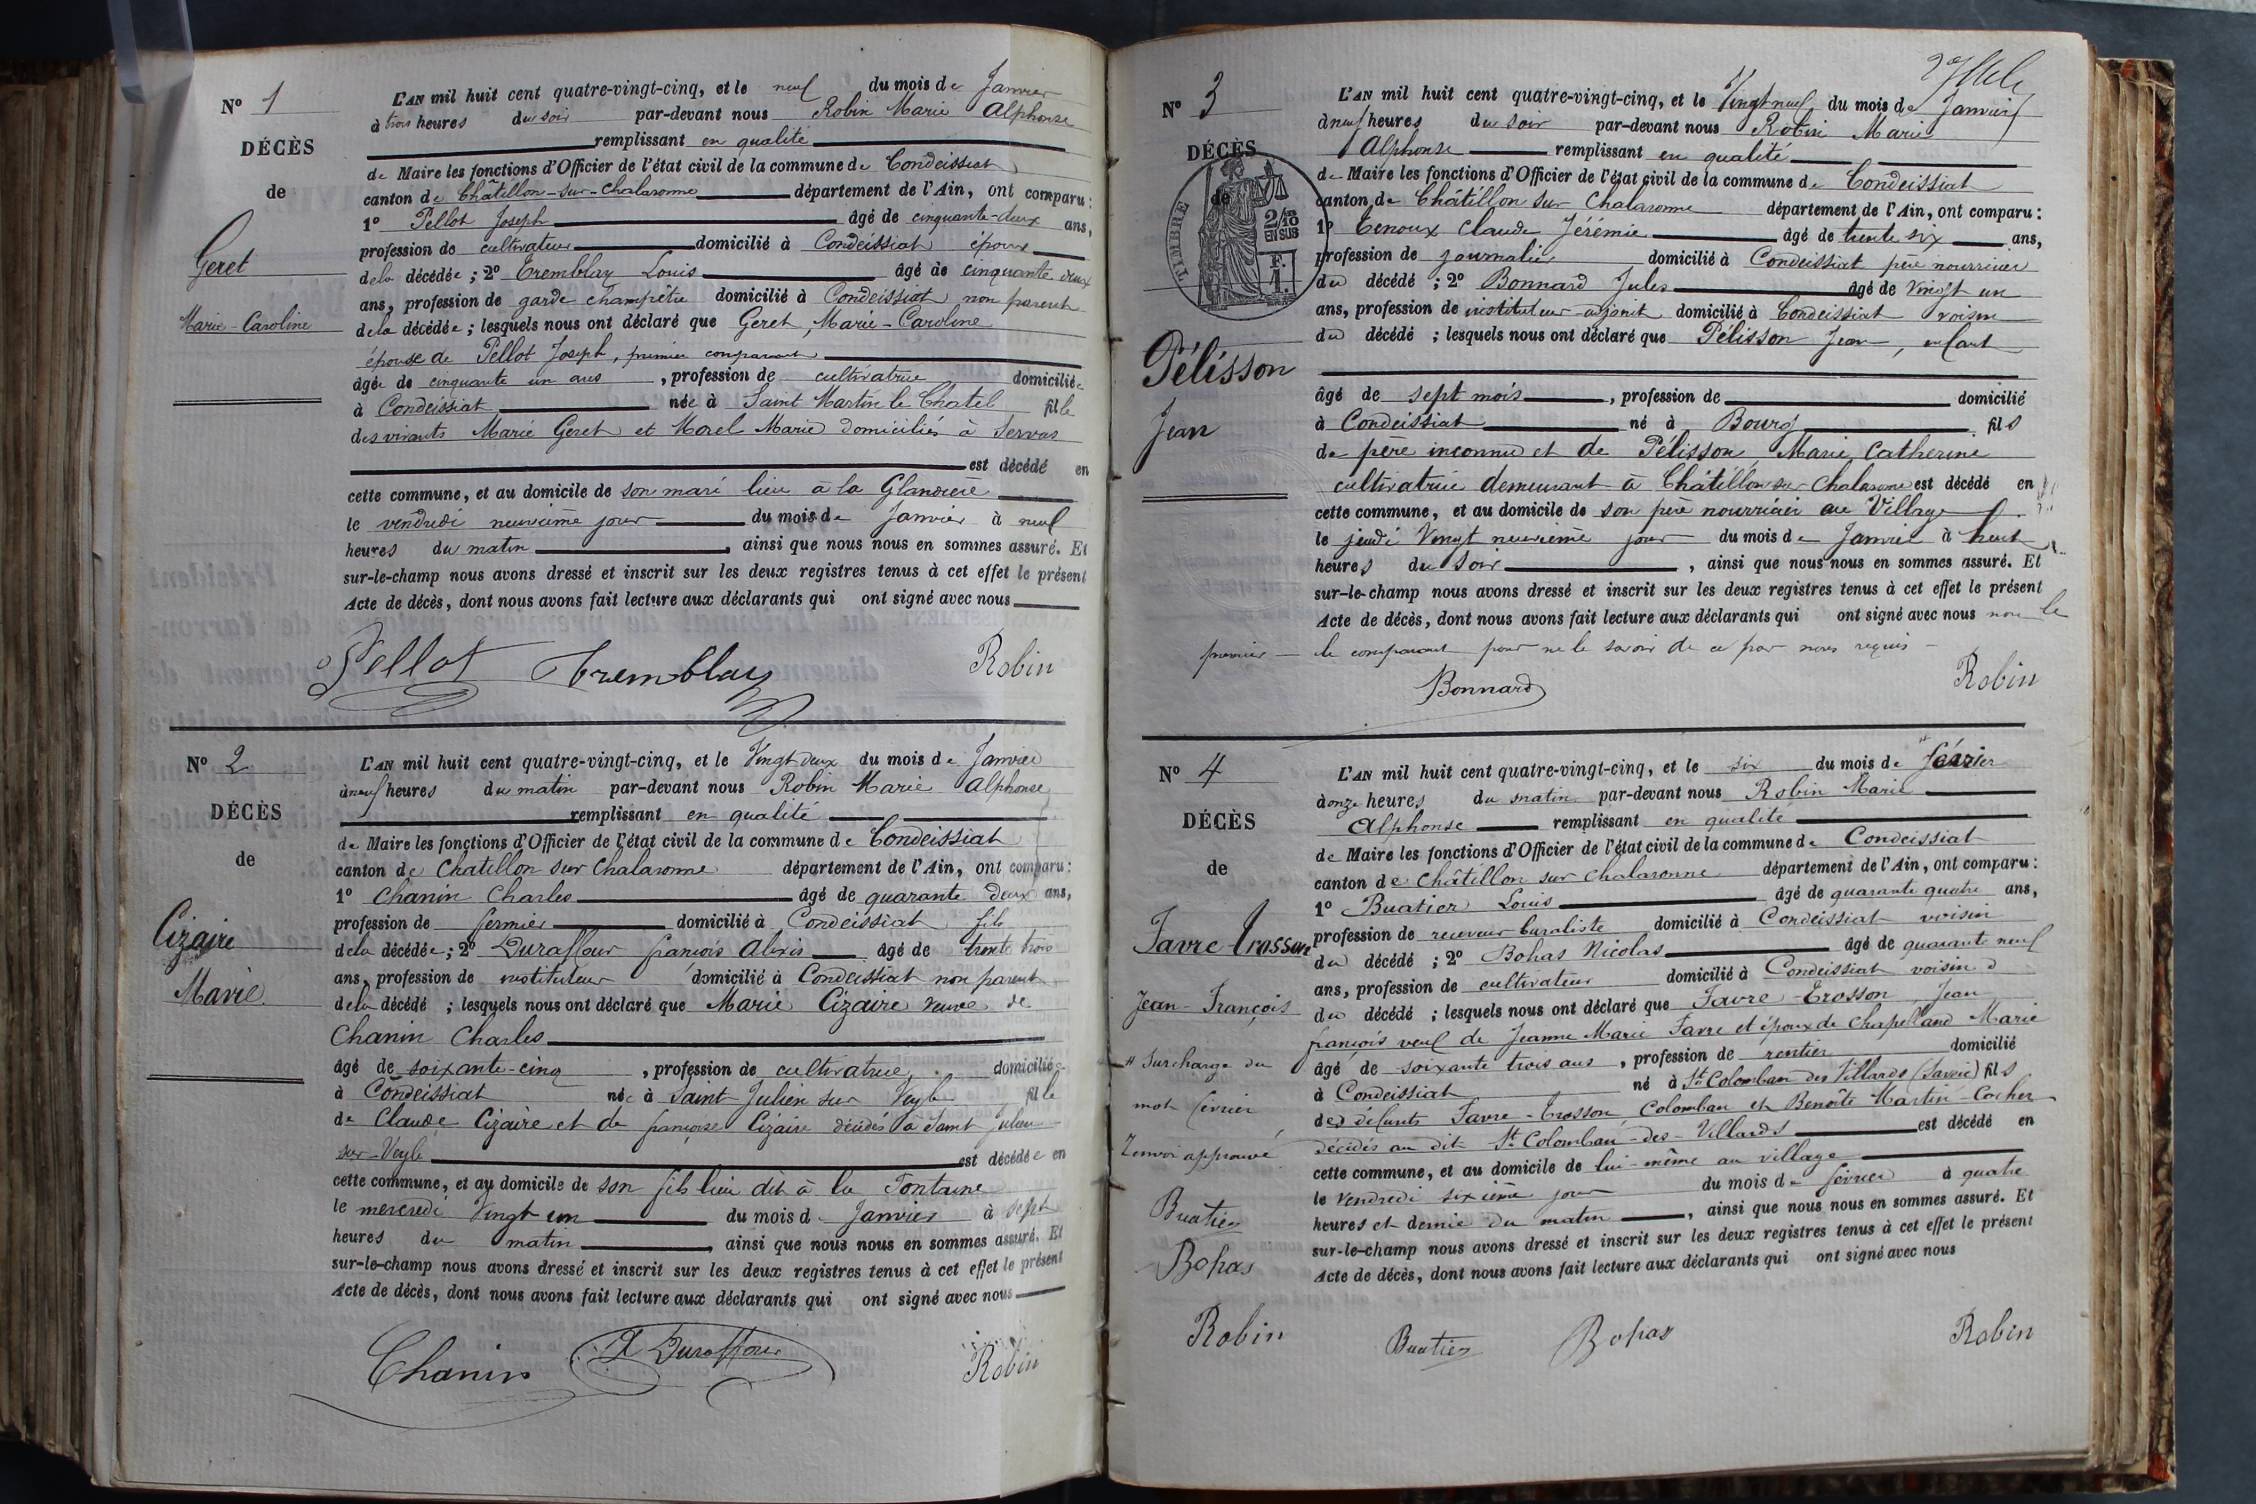 N° 1
DÉCÈS
de
Geret
Marie-Caroline
L'AN mil huit cent quatre-vingt-cinq, et le neuf du mois de Janvier
à trois heures du soir par-devant nous Robin Marie Alphonse
remplissant en qualité
de Maire les fonctions d'Officier de l'état civil de la commune de Condeissiat
canton de Châtillon-sur-Chalaronne département de l'Ain, ont comparu :
1° Pellot Joseph âgé de cinquante-deux ans,
profession de cultivateur domicilié à Condeissiat époux
de la décédée ; 2° Tremblay Louis âgé de cinquante deux
ans, profession de garde champêtre domicilié à Condeissiat non parent
de la décédée ; lesquels nous ont déclaré que Geret, Marie-Caroline
épouse de Pellot Joseph, premier comparant
âgée de cinquante un ans , profession de cultivatrice domiciliée
à Condeissiat née à Saint Martin le Chatel fille
des vivants Marie Geret et Morel Marie domiciliés à Servas
est décédé en
cette commune, et au domicile de son mari lieu à la Glandière
le vendredi neuvième jour du mois de Janvier à neuf
heures du matin , ainsi que nous nous en sommes assuré. Et
sur-le-champ nous avons dressé et inscrit sur les deux registres tenus à cet effet le présent
Acte de décès, dont nous avons fait lecture aux déclarants qui ont signé avec nous
Pellot Tremblay Robin
N° 2
DÉCÈS
de
Cizaire
Marie
L'AN mil huit cent quatre-vingt-cinq, et le Vingt deux du mois de Janvier
à neuf heures du matin par-devant nous Robin Marie Alphonse
remplissant en qualité
de Maire les fonctions d'Officier de l'état civil de la commune de Condeissiat
canton de Chatillon sur Chalaronne département de l'Ain, ont comparu :
1° Chanin Charles âgé de quarante deux ans,
profession de fermier domicilié à Condeissiat fils
de la décédée ; 2° Duraffour françois Alexis âgé de trente trois
ans, profession de instituteur domicilié à Condeissiat non parent
de la décédé ; lesquels nous ont déclaré que Marie Cizaire veuve de
Chanin Charles
âgé de soixante-cinq , profession de cultivatrice domiciliée
à Condeissiat née à Saint Julien sur Veyle fille
de Claude Cizaire et de françoise Cizaire décédés à Saint Julien
sur-Veyle est décédée en
cette commune, et au domicile de son fils lieu dit à la Fontaine
le mercredi Vingt un du mois d Janvier à sept
heures du matin , ainsi que nous nous en sommes assuré. Et
sur-le-champ nous avons dressé et inscrit sur les deux registres tenus à cet effet le présent
Acte de décès, dont nous avons fait lecture aux déclarants qui ont signé avec nous
Chanin A Duraffour Robin
N° 3
DÉCÈS
de
TIMBRE
2/10
EN SUS
F.
1.
Pélisson
Jean
L'AN mil huit cent quatre-vingt-cinq, et le Vingt neuf du mois de Janvier
à neuf heures du soir par-devant nous Robin Marie
Alphonse remplissant en qualité
de Maire les fonctions d'Officier de l'état civil de la commune de Condeissiat
canton de Châtillon sur Chalaronne département de l'Ain, ont comparu :
1° Tenoux Claude Jérémie âgé de trente six ans,
profession de journalier domicilié à Condeissiat père nourricier
du décédé ; 2° Bonnard Jules âgé de vingt un
ans, profession de instituteur-adjoint domicilié à Condeissiat voisin
du décédé ; lesquels nous ont déclaré que Pélisson Jean, enfant
âgé de sept mois , profession de domicilié
à Condeissiat né à Bourg fils
de père inconnu et de Pélisson Marie Catherine
cultivatrice demeurant à Châtillon sur Chalaronne est décédé en
cette commune, et au domicile de son père nourricier au Village
le jeudi Vingt neuvième jour du mois de Janvier à huit
heures du soir , ainsi que nous nous en sommes assuré. Et
sur-le-champ nous avons dressé et inscrit sur les deux registres tenus à cet effet le présent
Acte de décès, dont nous avons fait lecture aux déclarants qui ont signé avec nous non le
premier le comparant pour ne le savoir de ce par nous requis
Bonnard Robin
N° 4
DÉCÈS
de
Favre-Trosson
Jean-François
L'AN mil huit cent quatre-vingt-cinq, et le six du mois de " février
à onze heures du matin par-devant nous Robin Marie
Alphonse remplissant en qualité
de Maire les fonctions d'Officier de l'état civil de la commune de Condeissiat
canton de Châtillon sur Chalaronne département de l'Ain, ont comparu :
1° Buatier Louis âgé de quarante quatre ans,
profession de receveur buraliste domicilié à Condeissiat voisin
du décédé ; 2° Bohas Nicolas âgé de quarante neuf
ans, profession de cultivateur domicilié à Condeissiat voisin d
du décédé ; lesquels nous ont déclaré que Favre-Trosson Jean
françois veuf de Jeanne Marie Favre et époux de Chapelland Marie
âgé de soixante trois ans , profession de rentier domicilié
à Condeissiat né à St Colomban des Villards (Savoie) fils
des défunts Favre-Trosson Colomban et Benoîte Martin-Cocher
décédés au dit St Colomban-des-Villards est décédé en
cette commune, et au domicile de lui-même au village
le Vendredi sixième jour du mois de février à quatre
heures et demie du matin , ainsi que nous nous en sommes assuré. Et
sur-le-champ nous avons dressé et inscrit sur les deux registres tenus à cet effet le présent
Acte de décès, dont nous avons fait lecture aux déclarants qui ont signé avec nous
" Surcharge du
mot février
renvoi approuvé
Buatier
Bohas
Robin Buatier Bohas Robin